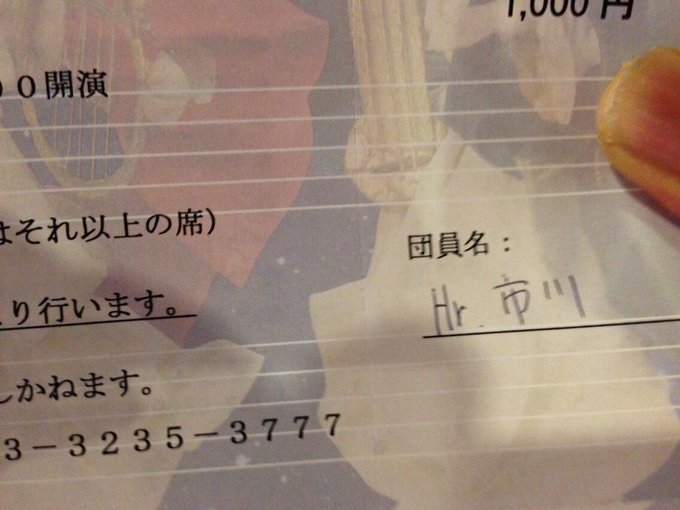 1,000 円
00開演
はそれ以上の席）
団員名：
Hr. 市川
り行います。
しかねます。
3－3235－3777